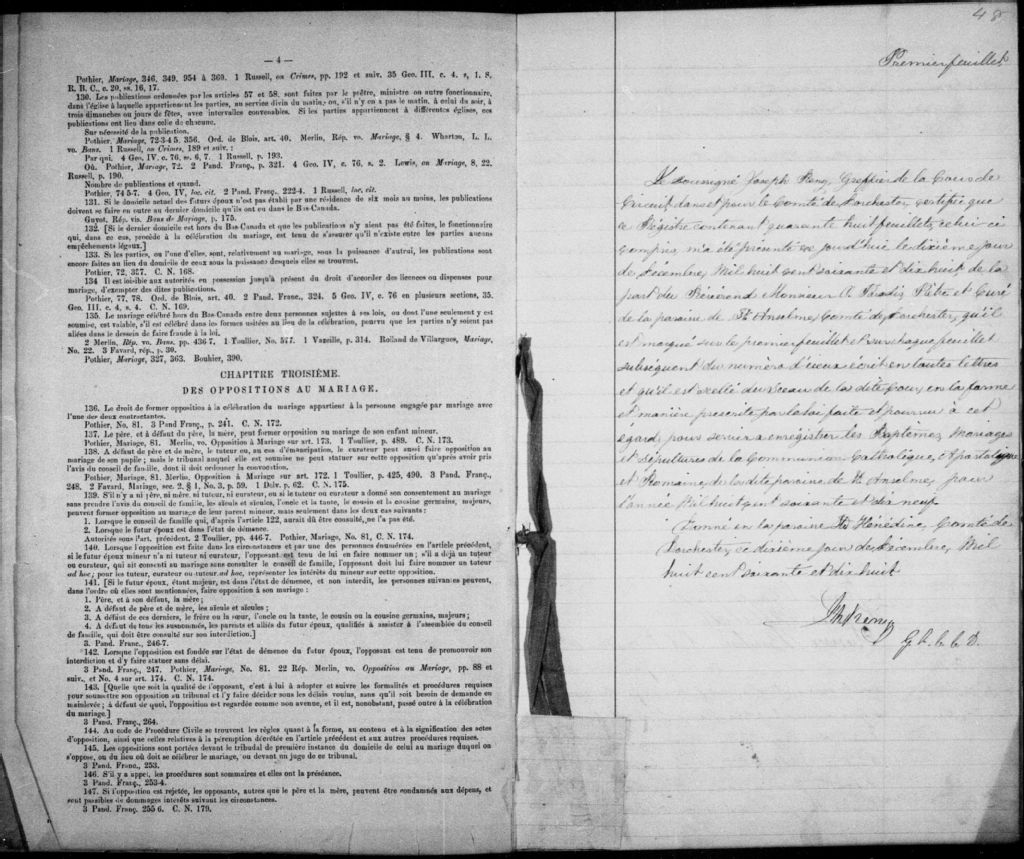 — 4 —
Pothier, Mariage, 346, 349, 954 à 360. 1 Russell, on Crimes, pp. 192 et suiv. 35 Geo. III, c. 4, s, 1. S.
R. B. C., c. 20, ss. 16, 17.
130. Les publications ordonnées par les articles 57 et 58, sont faites par le prêtre, ministre ou autre fonctionnaire,
dans l'église à laquelle appartiennent les parties, au service divin du matin, ou, s'il n'y en a pas le matin, à celui du soir, à
trois dimanches ou jours de fêtes, avec intervalles convenables. Si les parties appartiennent à différentes églises, ces
publications ont lieu dans celle de chacune.
Sur nécessité de la publication.
Pothier, Mariage, 72-3-4 5, 356. Ord. de Blois, art. 40. Merlin, Rép. vo. Mariage, § 4. Wharton, L. L.
vo. Bans. 1 Russell, on Crimes, 189 et suiv. :
Par qui. 4 Geo. IV, c. 76, ss. 6, 7. 1 Russell, p. 193.
Où. Pothier, Mariage, 72. 2 Pand. Franç., p. 321. 4 Geo. IV, c. 76, s. 2. Lewis, on Mariage, 8, 22.
Russell, p. 190.
Nombre de publications et quand.
Pothier, 74 5-7. 4 Geo, IV, loc. cit. 2 Pand. Franç., 222-4. 1 Russell, loc. cit.
131. Si le domicile actuel des futurs époux n'est pas établi par une résidence de six mois au moins, les publications
doivent se faire en outre au dernier domicile qu'ils ont eu dans le Bas-Canada.
Guyot, Rép. vis. Bans de Mariage, p. 175.
132. [Si le dernier domicile est hors du Bas-Canada et que les publications n'y aient pas été faites, le fonctionnaire
qui, dans ce cas, procède à la célébration du mariage, est tenu de s'assurer qu'il n'existe entre les parties aucuns
empêchements légaux.]
133. Si les parties, ou l'une d'elles, sont, relativement au mariage, sous la puissance d'autrui, les publications sont
encore faites au lieu du domicile de ceux sous la puissance desquels elles se trouvent.
Pothier, 72, 357. C. N. 168.
134 Il est loisible aux autorités en possession jusqu'à présent du droit d'accorder des licences ou dispenses pour
mariage, d'exempter des dites publications.
Pothier, 77, 78. Ord. de Blois, art. 40. 2 Pand. Franc., 324. 5 Geo. IV, c. 76 en plusieurs sections, 35.
Geo. III, c. 4, s. 4. C. N. 169.
135. Le mariage célébré hors du Bas-Canada entre deux personnes sujettes à ses lois, ou dont l'une seulement y est
soumise, est valable, s'il est célébré dans les formes usitées au lieu de la célébration, pourvu que les parties n'y soient pas
allées dans le dessein de faire fraude à la loi.
2 Merlin, Rép. vo. Bans, pp. 436-7. 1 Toullier, No. 577. 1 Vazeille, p. 314. Rolland de Villargues, Mariage,
No. 22. 3 Favard, rép., p. 30.
Pothier, Mariage, 327, 363. Bouhier, 390.
CHAPITRE TROISIÈME.
DES OPPOSITIONS AU MARIAGE.
136. Le droit de former opposition à la célébration du mariage appartient à la personne engagée par mariage avec
l'une des deux contractantes.
Pothier, No. 81. 3 Pand Franç., p. 241. C. N. 172.
137. Le père, et à défaut du père, la mère, peut former opposition au mariage de son enfant mineur.
Pothier, Mariage, 81. Merlin, vo. Opposition à Mariage sur art. 173. 1 Toullier, p. 489. C. N. 173.
138. A défaut de père et de mère, le tuteur ou, au cas d'émancipation, le curateur peut aussi faire opposition au
mariage de son pupille ; mais le tribunal auquel elle est soumise ne peut statuer sur cette opposition qu'après avoir pris
l'avis du conseil de famille, dont il doit ordonner la convocation.
Pothier, Mariage, 81. Merlin, Opposition à Mariage sur art. 172. 1 Toullier, p. 425, 490. 3 Pand. Franç.,
248. 2 Favard, Mariage, sec. 2, § 1, No. 3, p. 59. 1 Dalr. p. 62. C. N. 175.
139. S'il n'y a ni père, ni mère, ni tuteur, ni curateur, ou si le tuteur ou curateur a donné son consentement au mariage
sans prendre l'avis du conseil de famille, les aïeuls et aïeules, l'oncle et la tante, le cousin et la cousine germains, majeurs,
peuvent former opposition au mariage de leur parent mineur, mais seulement dans les deux cas suivants :
1. Lorsque le conseil de famille qui, d'après l'article 122, aurait dû être consulté, ne l'a pas été.
2. Lorsque le futur époux est dans l'état de démence.
Autorités sous l'art. précédent. 2 Toullier, pp. 446-7. Pothier, Mariage, No. 81, C. N. 174.
140. Lorsque l'opposition est faite dans les circonstances et par une des personnes énumérées en l'article précédent,
si le futur époux mineur n'a ni tuteur ni curateur, l'opposant est tenu de lui en faire nommer un ; s'il a déjà un tuteur
ou curateur, qui ait consenti au mariage sans consulter le conseil de famille, l'opposant doit lui faire nommer un tuteur
ad hoc ; pour les tuteur, curateur ou tuteur ad hoc, représenter les intérêts du mineur sur cette opposition.
141. [Si le futur époux, étant majeur, est dans l'état de démence, et non interdit, les personnes suivantes peuvent,
dans l'ordre où elles sont mentionnées, faire opposition à son mariage :
1. Père, et à son défaut, la mère ;
2. A défaut de père et de mère, les aïeuls et aïeules ;
3. A défaut de ces derniers, le frère ou la sœur, l'oncle ou la tante, le cousin ou la cousine germains, majeurs ;
4. A défaut de tous les susnommés, les parents et alliés du futur époux, qualifiés à assister à l'assemblée du conseil
de famille, qui doit être consulté sur son interdiction.]
3. Pand. Franç., 246-7.
142. Lorsque l'opposition est fondée sur l'état de démence du futur époux, l'opposant est tenu de promouvoir son
interdiction et d'y faire statuer sans délai.
3 Pand. Franç., 247. Pothier, Mariage, No. 81. 22 Rép. Merlin, vo. Opposition au Mariage, pp. 88 et
suiv., et No. 4 sur art. 174. C. N. 174.
143. [Quelle que soit la qualité de l'opposant, c'est à lui à adopter et suivre les formalités et procédures requises
pour soumettre son opposition au tribunal et l'y faire décider sous les délais voulus, sans qu'il soit besoin de demande en
mainlevée ; à défaut de quoi, l'opposition est regardée comme non avenue, et il est, nonobstant, passé outre à la célébration
du mariage.]
3 Pand. Franç., 264.
144. Au code de Procédure Civile se trouvent les règles quant à la forme, au contenu et à la signification des actes
d'opposition, ainsi que celles relatives à la péremption décrétée en l'article précédent et aux autres procédures requises.
145. Les oppositions sont portées devant le tribudal de première instance du domicile de celui au mariage duquel on
s'oppose, ou du lieu où doit se célébrer le mariage, ou devant un juge de ce tribunal.
3 Pand. Franc., 253.
146. S'il y a appel, les procédures sont sommaires et elles ont la préséance.
3 Pand. Franç., 253-4.
147. Si l'opposition est rejetée, les opposants, autres que le père et la mère, peuvent être condamnés aux dépens, et
sont passibles de dommages intérêts suivant les circonstances.
3 Pand. Franç. 255 6. C. N. 179.
48
Premier feuillet
Je soussigné Joseph Remy Greffier de la Cour de
Circuit dans et pour le Comté de Dorchester, certifie que
ce Régistre contenant quarante huit feuillets, celui-ci
compris, m'a été présenté ce jourd'hui le dixième jour
de Décembre, Mil huit cent soixante et dix huit de la
part du Révérend Monsieur O. Paradis Ptre. et Curé
de la paroisse de St Anselme, Comté de Dorchester, qu'il
est marqué sur le premier feuillet et sur chaque feuillet
subséquent du numéro d'iceux écrit en toutes lettres
et qu'il est scellé du Sceau de la dite Cour, en la forme
et manière prescrite par la loi faite et pourvue à cet
égard, pour servir à enregistrer les Baptêmes, Mariages
et Sépultures de la Communion Catholique, Apostolique
et Romaine, de la dite paroisse de St Anselme, pour
l'année Mil huit cent soixante et dix neuf
Donné en la paroisse Ste Hénédine, Comté de
Dorchester, ce dixième jour de Décembre, Mil
huit cent soixante et dix huit
Jos Remy
G. C. C. C. D.